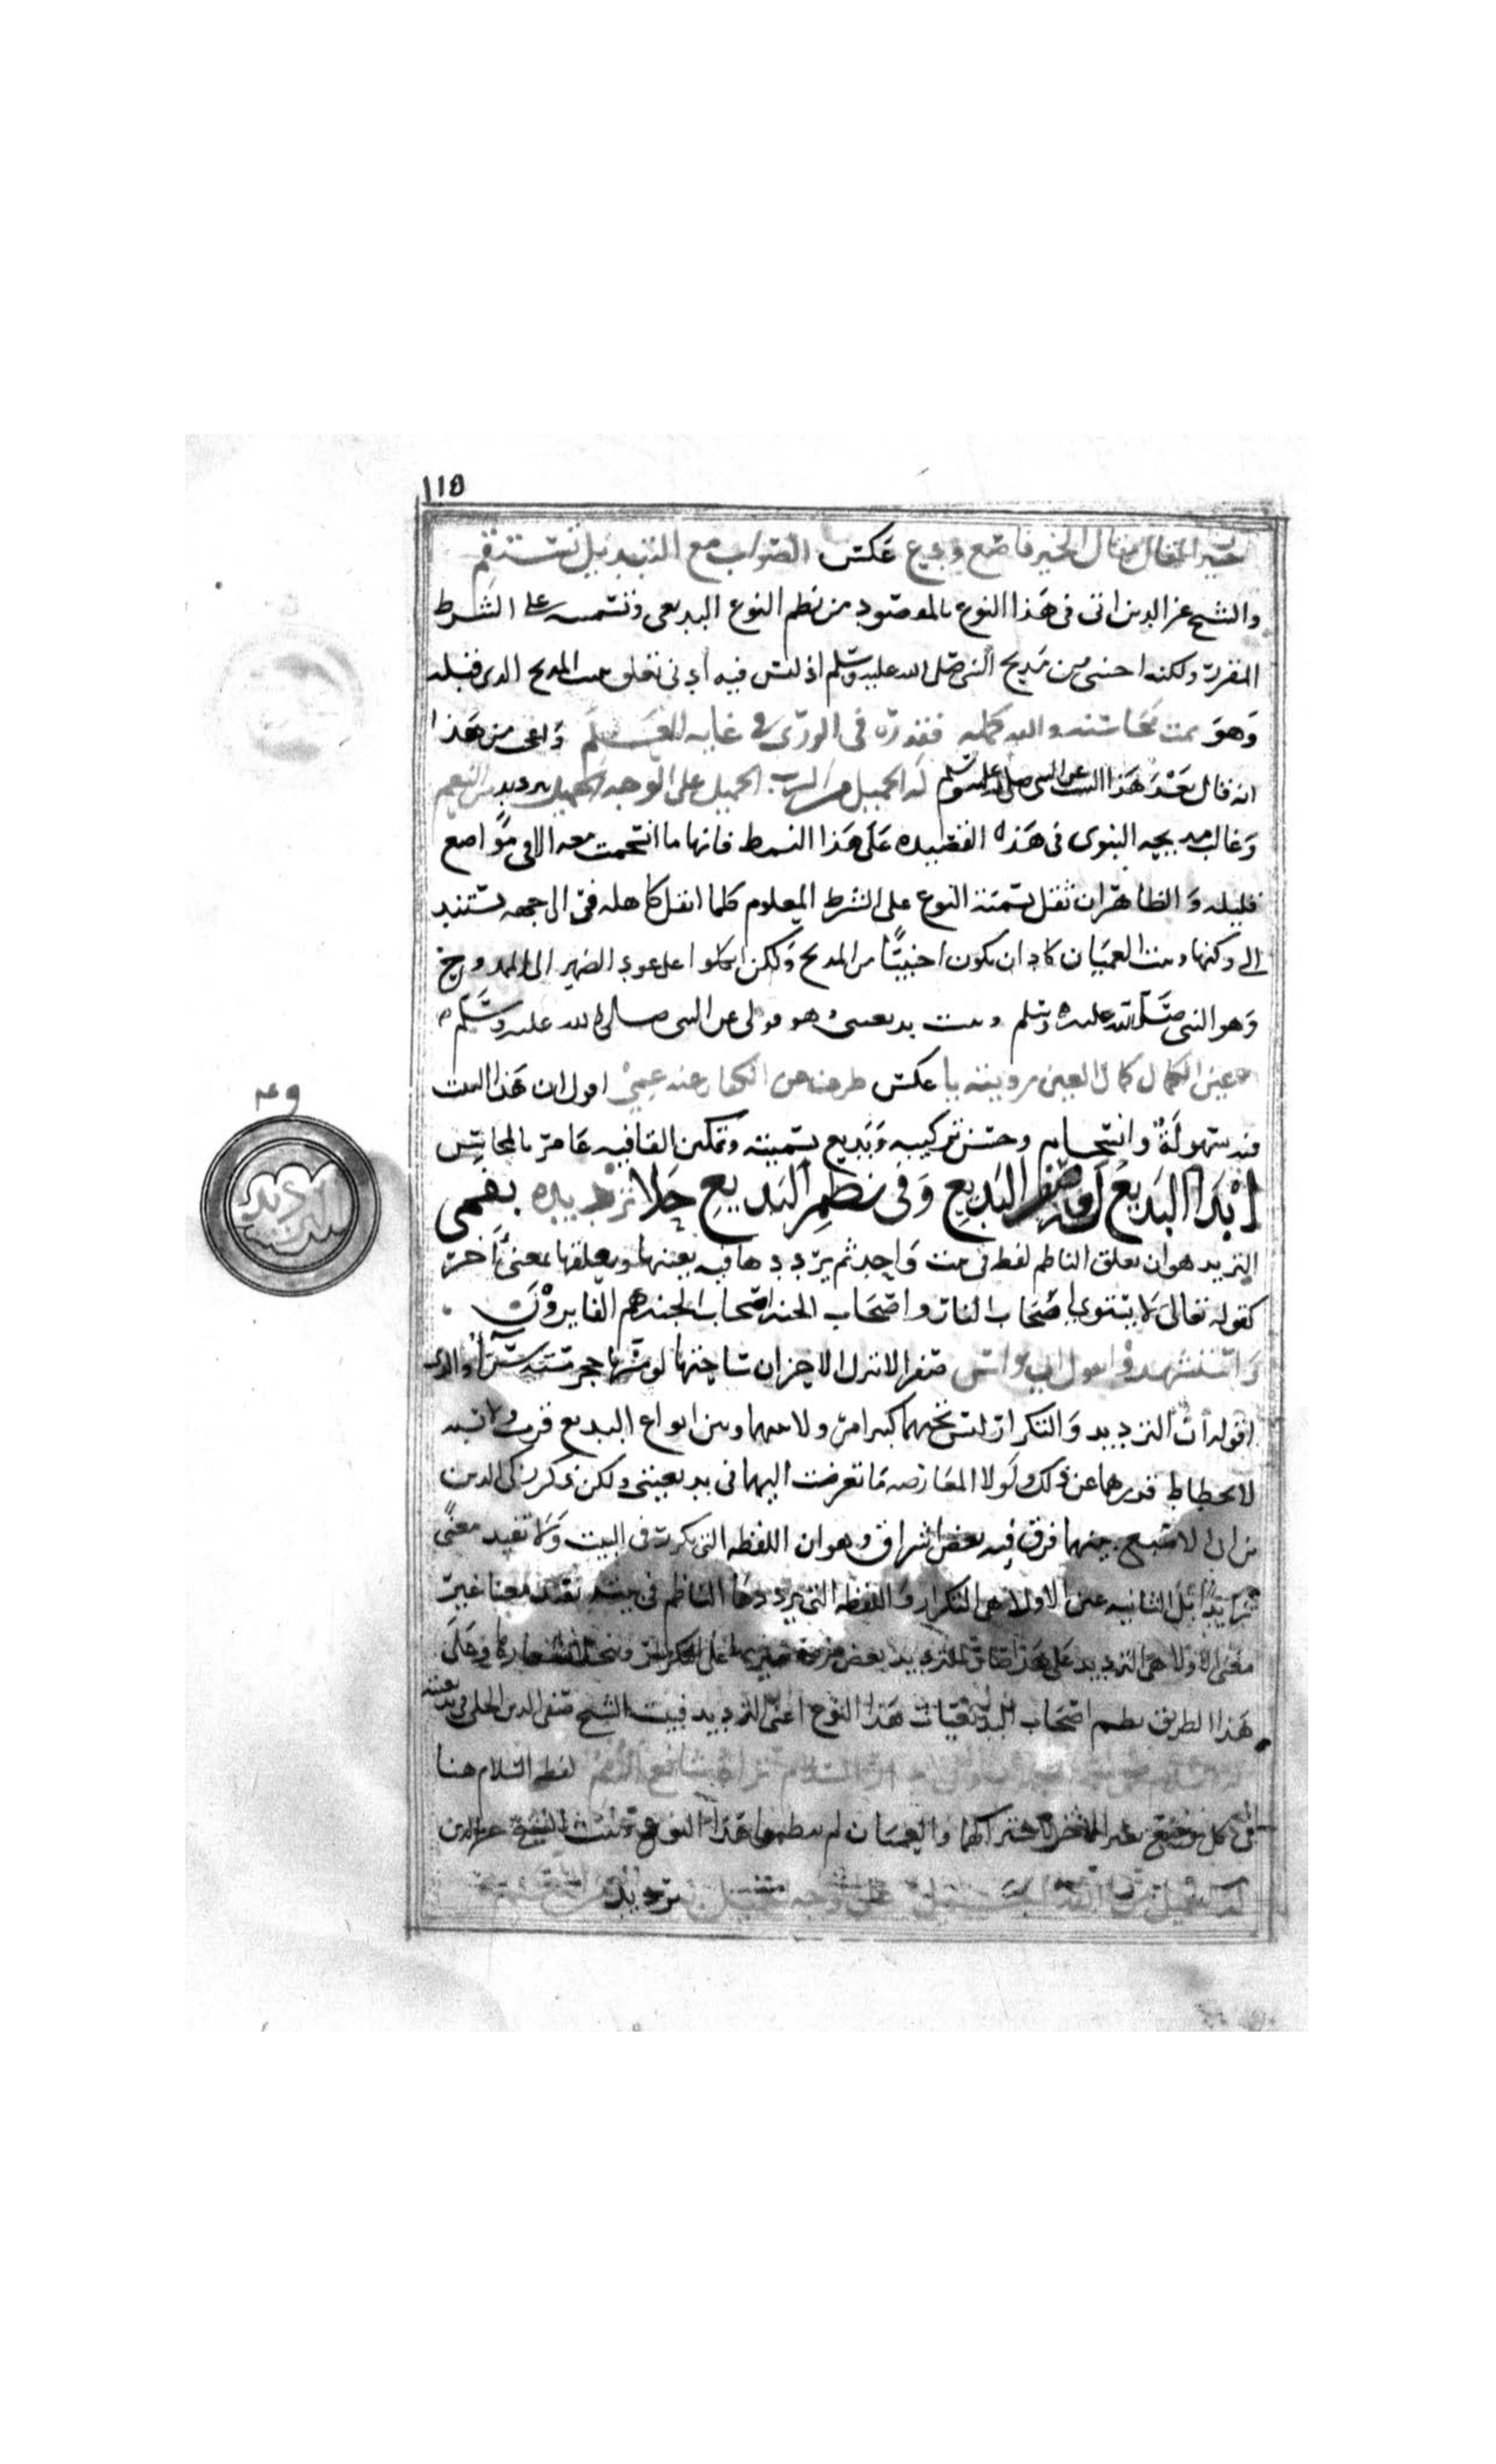 ١١٥
خير المقال مقال الخير فاصغ ودع عكس الصواب مع التبديل تستقم
والشيخ عز الدين اتى فى هذا النوع بالمقصود من نظم النوع البديعى وتسميته على الشرط
المقرر ولكنه اجنبى من مديح النبى صلى الله عليه وسلم اذ ليس فيه ادنى تعلق ببيت المديح الذى قبله
وهو تمت محاسنه والله كمله فقدره فى الورى فى غايه العظم واعجب من هذا
انه قال بعد هذا البيت عن النبى صلى الله عليه وسلم له الجميل من الرب الجميل على الوجه الجميل بترديد من النعم
وغالب مديحه النبوى فى هذه القصيده على هذا النمط فانها ما انسجمت معه الا فى مواضع
قليله والظاهر ان ثقل تسمية النوع على الشرط المعلوم كلما اثقل كاهله فر الى جهه يستند
الى ركنها وبيت العميان كاد ان يكون اجنبيا من المديح ولكن اتكلوا على عود الضمير الى الممدوح
وهو النبى صلى الله عليه وسلم وبيت بديعيتى هو قولى عن النبى صلى الله عليه وسلم
عين الكمال كمال العين رويته يا عكس طرف من الكفار عنه عمى اقول ان هذا البيت
فيه سهولة وانسجام وحسن تركيبه وبديع تسميته وتمكين القافيه عامر بالمحاسن
ابدا البديع له الوصف البديع وفى نظم البديع حلا ترديده بفمى
الترديد هو ان يعلق الناظم لفظه فى بيت واحد ثم يرددها فيه بعينها ويعلقها بمعنى آخر
كقوله تعالى لا يستوى اصحاب النار واصحاب الجنه اصحاب الجنه هم الفايزون
واستشهدوا بقول ابى نواس صفرا لا تنزل الاحزان ساحتها لو مسها حجر مسته سرآ والذى
اقوله ان الترديد والتكرار ليس تحتهما كبير امر ولا بينهما وبين انواع البديع قرب ولا نسبه
لانحطاط قدرهما عن ذلك ولولا المعارضه ما تعرضت اليهما فى بديعيتى ولكن ذكر زكى الدين
بن ابى الاصبع بينهما فرق فيه بعض اشراق وهو ان اللفظه التى تكررت فى البيت ولا تفيد معنى
زايدا بل الثانيه عين الاولى هى التكرار واللفظه التى يرددها الناظم فى بيته تفيد معنا غير
معنى الاولى هى الترديد على هذا صار للترديد بعض مزيه يتميز بها على التكرار وعلى
هذا الطريق نظم اصحاب البديعيات هذا النوع اعنى الترديد فبيت الشيخ صفى الدين الحلى فى بديعيته
السلام تراه شافع الأمم لفظ السلام هنا
فى كل موضع غير الآخر والعميان لم ينظموا هذا النوع وبيت الشيخ عز الدين
له الجميل من الرب الجميل على الوجه الجميل بترديد من النعم
٤٩
الترديد